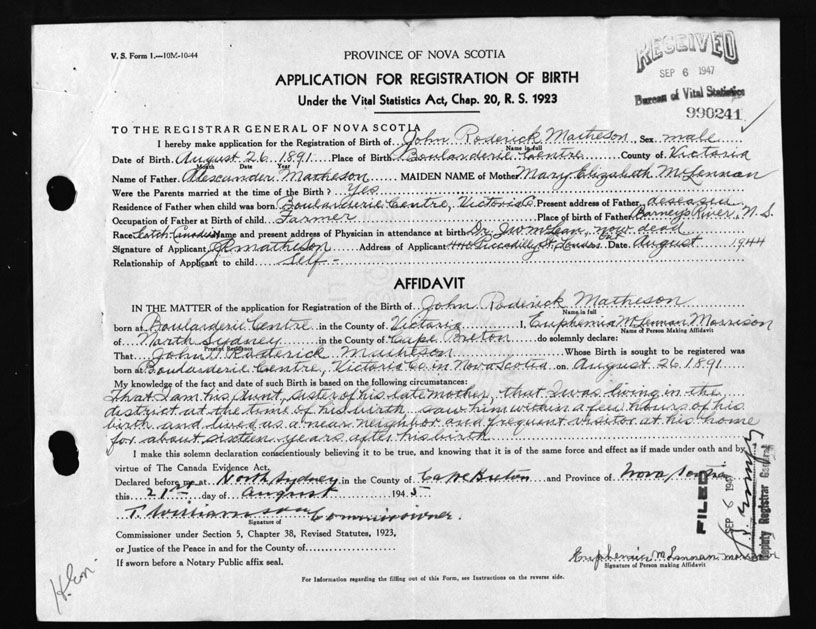 V. S. Form 1.—10M-10-44
PROVINCE OF NOVA SCOTIA
RECEIVED
SEP 6 1947
Bureau of Vital Statistics
990241
APPLICATION FOR REGISTRATION OF BIRTH
Under the Vital Statistics Act, Chap. 20, R. S. 1923
TO THE REGISTRAR GENERAL OF NOVA SCOTIA
I hereby make application for the Registration of Birth of John Roderick Matheson Sex male
Name in full
Date of Birth August 26 1891 Place of Birth Boularderie Centre County of Victoria
Month Date Year
Name of Father Alexander Matheson MAIDEN NAME of Mother Mary Elizabeth McLennan
Were the Parents married at time of the Birth? Yes
Residence of Father when child was born Boularderie Centre, Victoria Co. Present address of Father deceased
Occupation of Father at Birth of child Farmer Place of birth of Father Barney's River, N.S.
Race Scotch-Canadian Name and present address of Physician in attendance at birth Dr. McLean, now dead
Signature of Applicant J R Matheson Address of Applicant Piccadilly St. London Ont. Date August 1944
Relationship of Applicant to child Self-
AFFIDAVIT
IN THE MATTER of the application for Registration of the Birth of John Roderick Matheson
Name in full
born at Boularderie Centre in the County of Victoria I, Euphemia McLennan Morrison
Name of Person Making Affidavit
of North Sydney in the County of Cape Breton do solemnly declare:
Present Residence
That John Roderick Matheson Whose Birth is sought to be registered was
born at Boularderie Centre, Victoria Co. in Nova Scotia on August 26 1891
My knowledge of the fact and date of such Birth is based on the following circumstances:
That I am his aunt, sister of his late mother, that I was living in the
district at the time of his birth saw him within a few hours of his
birth and lived as a near neighbor and frequent visitor at his home
for about sixteen years after his birth
I make this solemn declaration conscientiously believing it to be true, and knowing that it is of the same force and effect as if made under oath and by
virtue of The Canada Evidence Act.
Declared before me at North Sydney in the County of Cape Breton and Province of Nova Scotia
this 21st day of August 1945
T. Williamson Commissioner.
Signature of
Commissioner under Section 5, Chapter 38, Revised Statutes, 1923,
or Justice of the Peace in and for the County of
If sworn before a Notary Public affix seal.
Euphemia McLennan Morrison
Signature of Person making Affidavit
For Information regarding the filling out of this Form, see Instructions on the reverse side.
FILED
SEP 6 1947
Deputy Registrar General